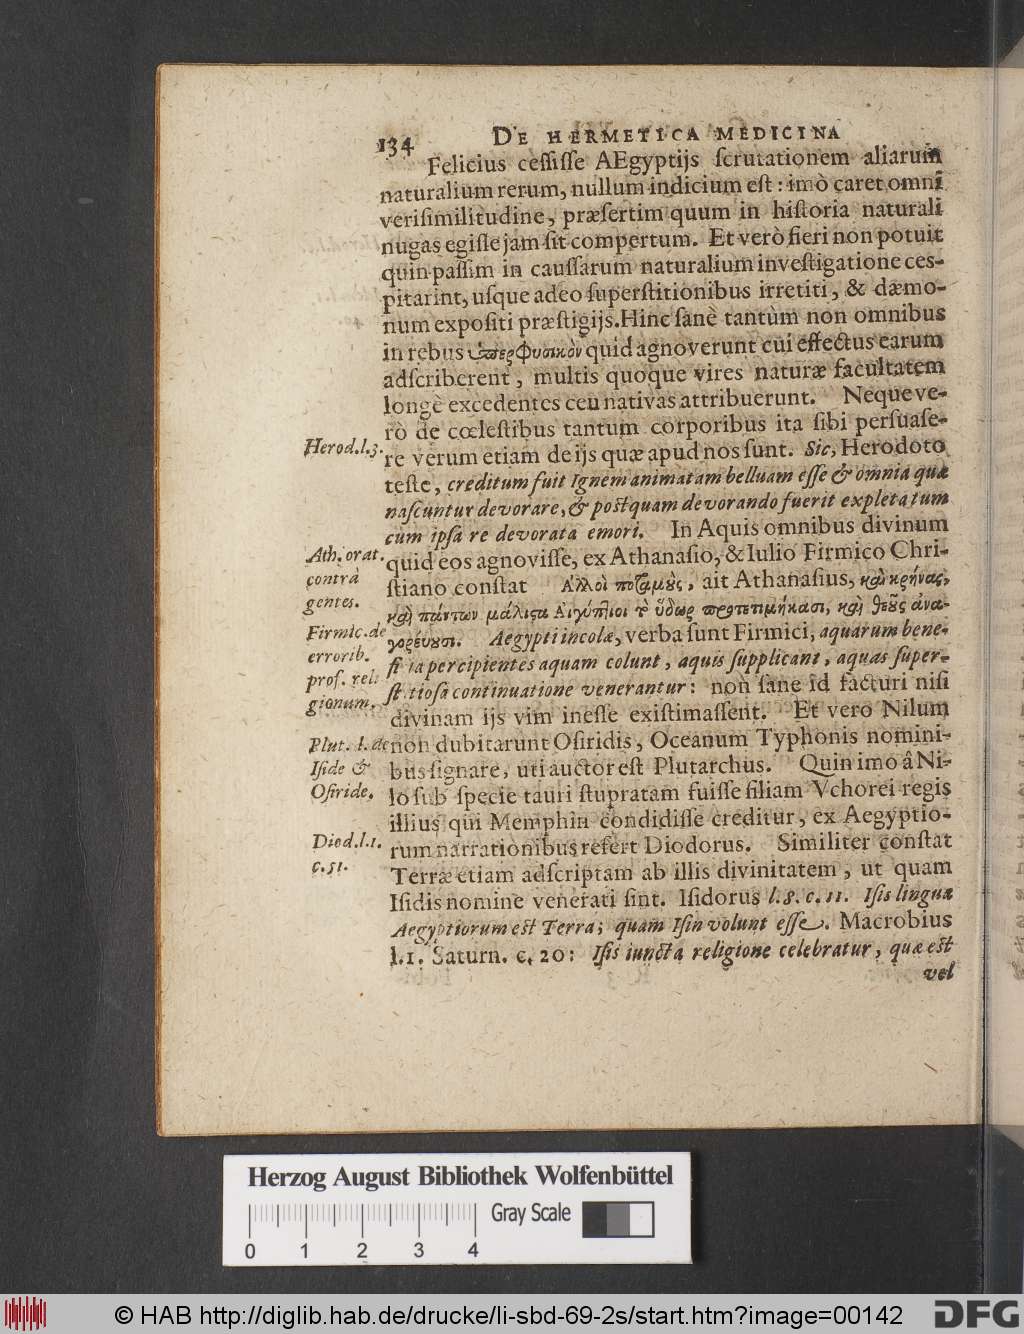 134 DE HERMETICA MEDICINA
Felicius cessisse AEgyptijs scrutationem aliarum
naturalium rerum, nullum indicium est: imò caret omni
verisimilitudine, præsertim quum in historia naturali
nugas egisse jam sit compertum. Et verò fieri non potuit
quin passim in caussarum naturalium investigatione ces-
pitarint, usque adeo superstitionibus irretiti, & dæmo-
num expositi præstigijs. Hinc sanè tantùm non omnibus
in rebus ὑπερφυσικὸν quid agnoverunt cui effectus earum
adscriberent, multis quoque vires naturæ facultatem
longè excedentes ceu nativas attribuerunt. Neque ve-
rò de cœlestibus tantum corporibus ita sibi persuase-
Herod.l.3. re verum etiam de ijs quæ apud nos sunt. Sic, Herodoto
teste, creditum fuit Ignem animatam belluam esse & omnia quæ
nascuntur devorare, & postquam devorando fuerit expleta tum
cum ipsa re devorata emori. In Aquis omnibus divinum
Ath. orat. quid eos agnovisse, ex Athanasio, & Iulio Firmico Chri-
contrà stiano constat Ἀλλοὶ ποταμοὺς, ait Athanasius, καὶ κρήνας,
gentes. καὶ πάντων μάλιστα Αἰγύπτιοι τὸ ὕδωρ προτετιμήκασι, καὶ θεοὺς ἀνα-
Firmic. de γορεύουσι. Aegypti incolæ, verba sunt Firmici, aquarum bene-
errorib. fi ia percipientes aquam colunt, aquis supplicant, aquas super-
prof. reli
gionum. st tiosa continuatione venerantur: non sane id facturi nisi
divinam ijs vim inesse existimassent. Et vero Nilum
Plut. l. de non dubitarunt Osiridis, Oceanum Typhonis nomini-
Iside & bus signare, uti auctor est Plutarchus. Quin imo â Ni-
Osiride. lo sub specie tauri stupratam fuisse filiam Vchorei regis
illius qui Memphin condidisse creditur, ex Aegyptio-
Diod.l.1. rum narrationibus refert Diodorus. Similiter constat
c.51. Terræ etiam adscriptam ab illis divinitatem, ut quam
Isidis nomine venerati sint. Isidorus l. 8. c. 11. Isis lingua
Aegyptiorum est Terra; quam Isin volunt esse. Macrobius
l.1. Saturn. c. 20: Isis iuncta religione celebratur, quæ est
vel
Herzog August Bibliothek Wolfenbüttel
Gray Scale
0 1 2 3 4
© HAB http://diglib.hab.de/drucke/li-sbd-69-2s/start.htm?image=00142
DFG